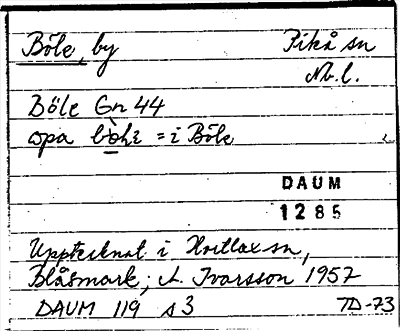 Böle, by Piteå sn
Nb. l.
Böle Gn 44
opa = i Böle
DAUM
1285
Upptecknat i Hortlax sn,
Blåsmark; A. Ivarsson 1957
DAUM 119 s 3 TD-73